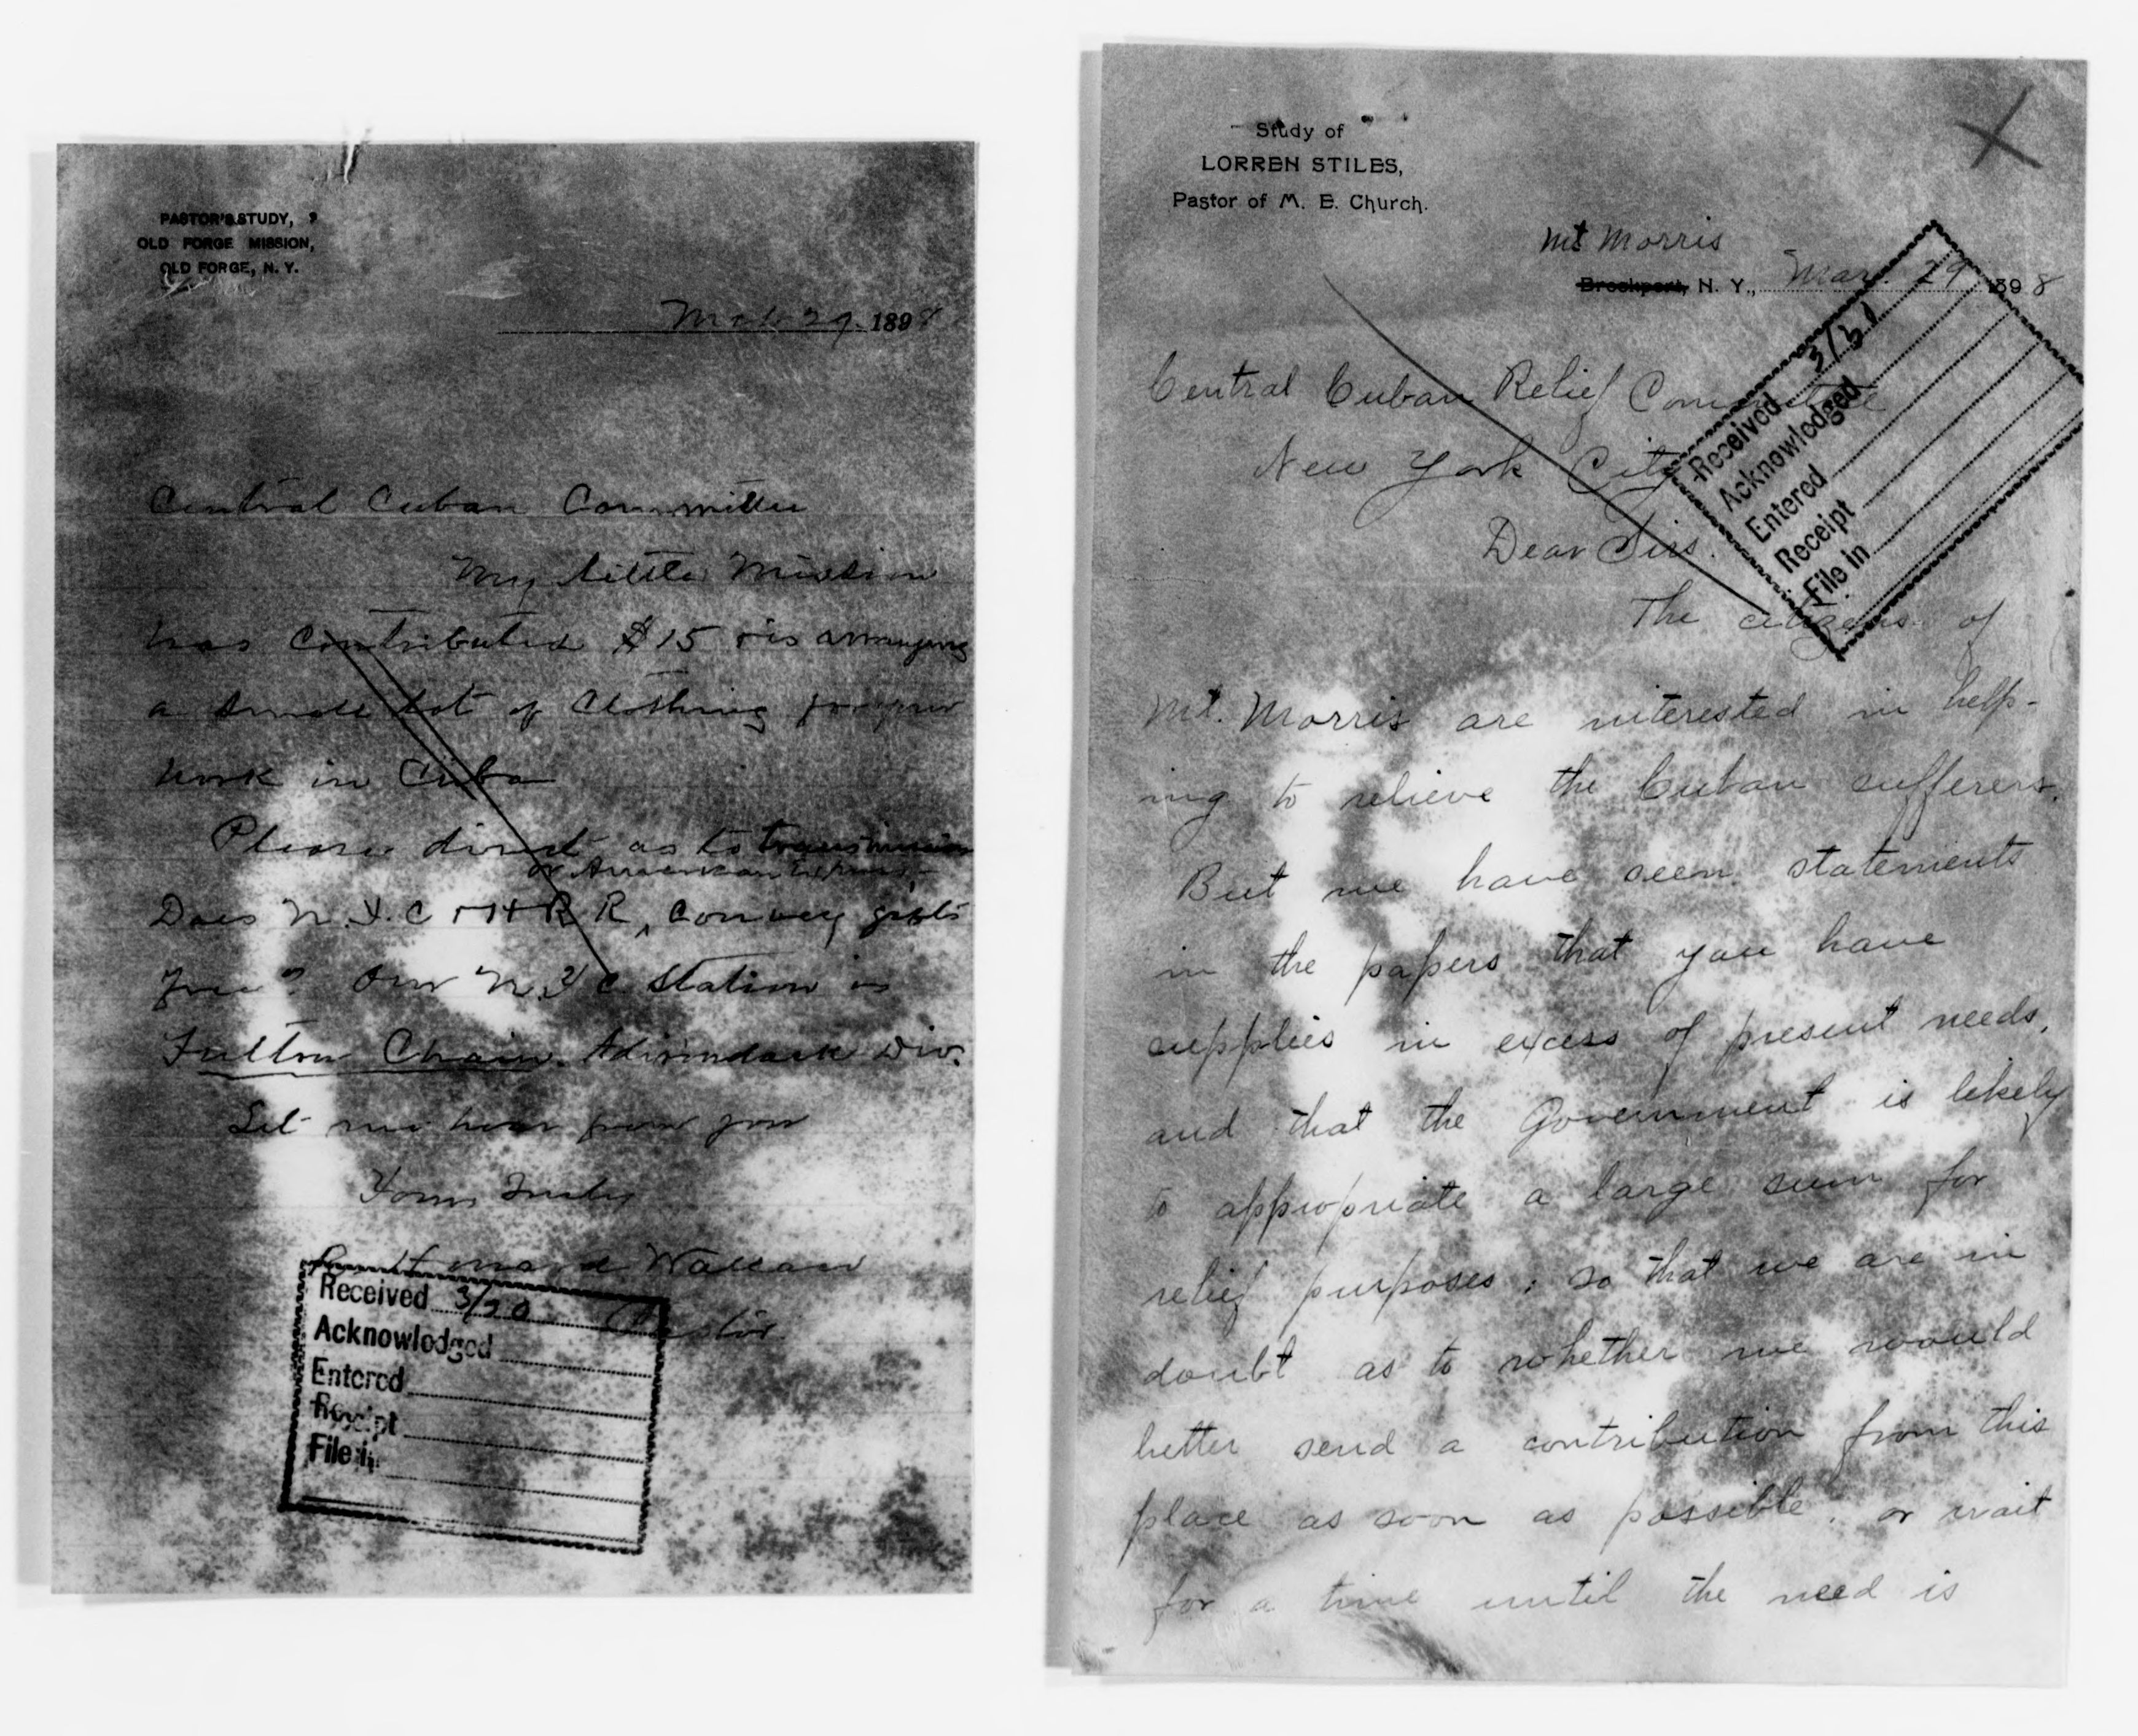 PASTOR'S STUDY,
OLD FORGE MISSION,
OLD FORGE, N. Y.
Mch 29. 1898
Central Cuban Committee
My little Mission
has contributed $15 & is arranging
a small lot of Clothing for your
work in Cuba
Please direct as to transmission
or American
Does N.Y.C & H R R, convey gifts
free? Our N.Y C Station is
Fulton Chain. Adirondack Div.
Let me hear from you
Yours Truly
Wallace
Pastor
Received 3/30
Acknowledged
Entered
Receipt
File in
Study of
LORREN STILES,
Pastor of M. E. Church.
Mt Morris
Brockport, N. Y., Mar. 29 1898
Received 3/31
Acknowledged
Entered
Receipt
File in
Central Cuban Relief Committee
New York City
Dear Sirs.
The citizens of
Mt. Morris are interested in help-
ing to relieve the Cuban sufferers.
But we have seen statements
in the papers that you have
supplies in excess of present needs,
and that the Government is likely
to appropriate a large sum for
relief purposes; so that we are in
doubt as to whether we would
better send a contribution from this
place as soon as possible, or wait
for a time until the need is